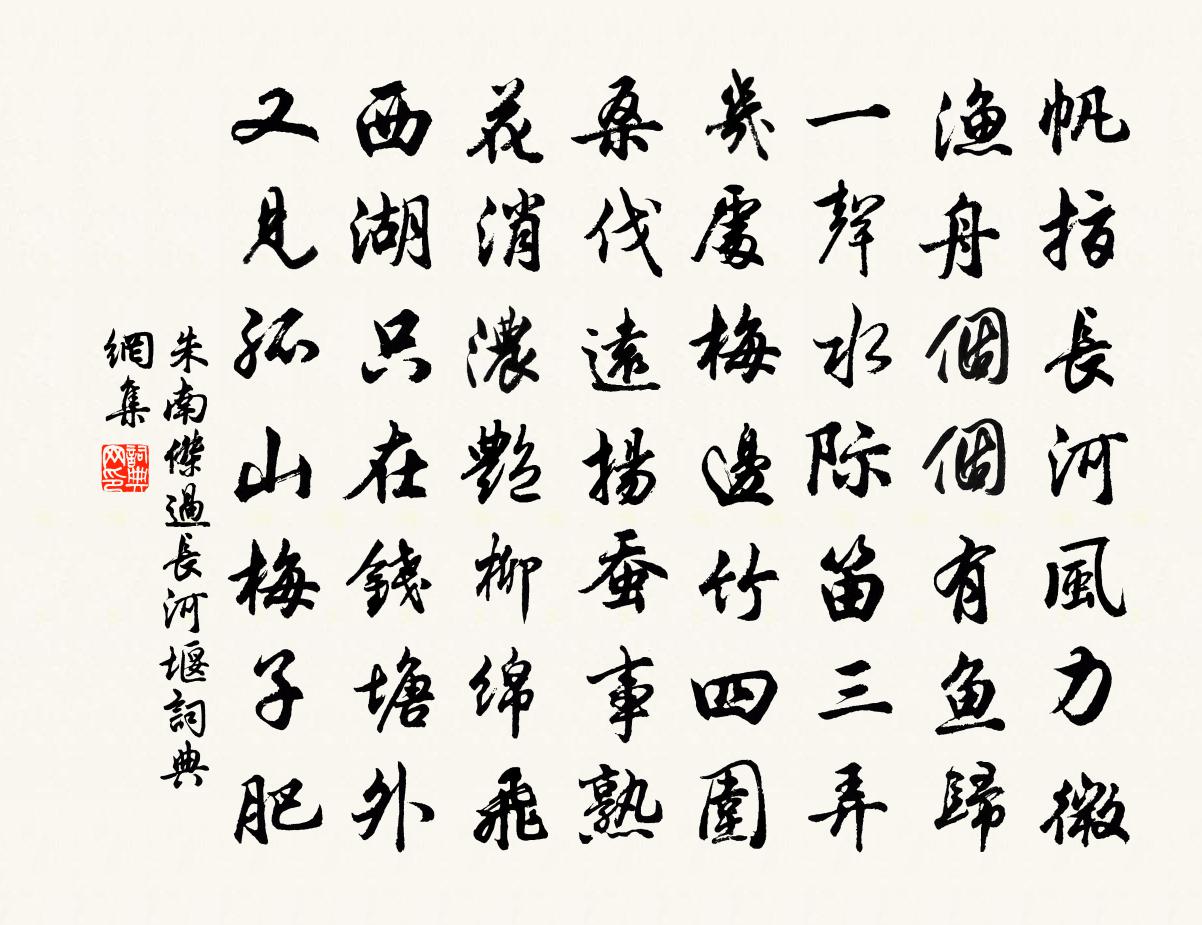 帆指長河風力微
漁舟個個有魚歸
一聲水際笛三弄
幾處梅邊竹四圍
桑伐遠揚蚕事熟
花消濃艷柳綿飛
西湖只在錢塘外
又見孤山梅子肥
朱南傑過長河堰詞典
網集
詞典
网印